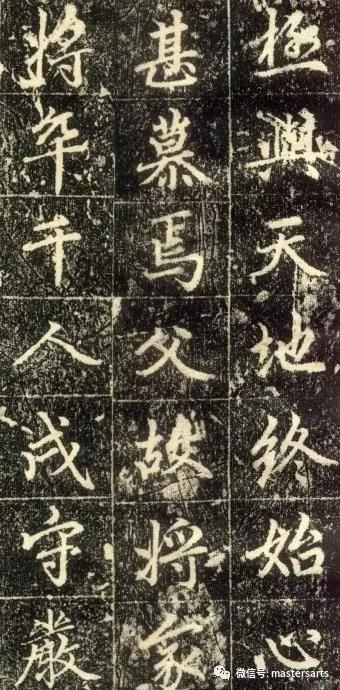 極與天地終始心
甚慕焉父故将家
将卒千人戍守嚴
微信号: mastersarts